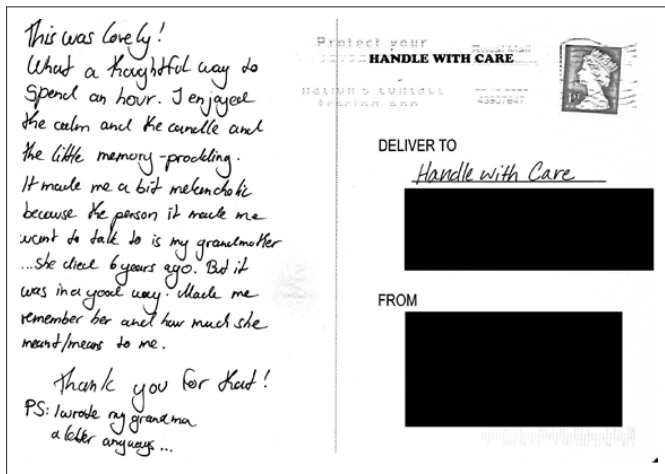 This was lovely!
What a thoughtful way to
spend an hour. I enjoyed
the calm and the candle and
the little memory-prodding.
It made me a bit melancholic
because the person it made me
want to talk to is my grandmother
...she died 6 years ago. But it
was in a good way. Made me
remember her and how much she
meant/means to me.
Thank you for that!
PS: I wrote my grandma
a letter anyways...
Protect your
Royal Mail
HANDLE WITH CARE
Nation's Contact
tracing app
43907647
1st
DELIVER TO
Handle with Care
FROM